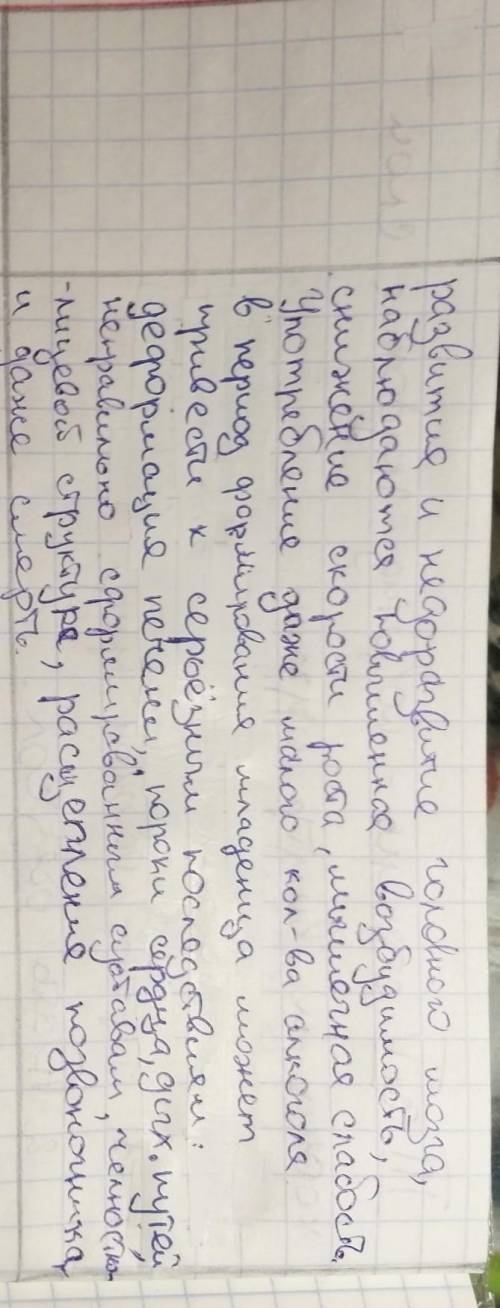 развития и недоразвитие головного мозга,
наблюдаются повышенная возбудимость,
снижение скорости роста, мышечная слабость.
Употребление даже малого кол-ва алкоголя
в период формирования младенца может
привести к серьёзным последствиям:
деформация печени, пороки сердца, дых. путей,
неправильно сформированным суставам, челюстно
-лицевой структуре, расщепления позвоночника,
и даже смерть.